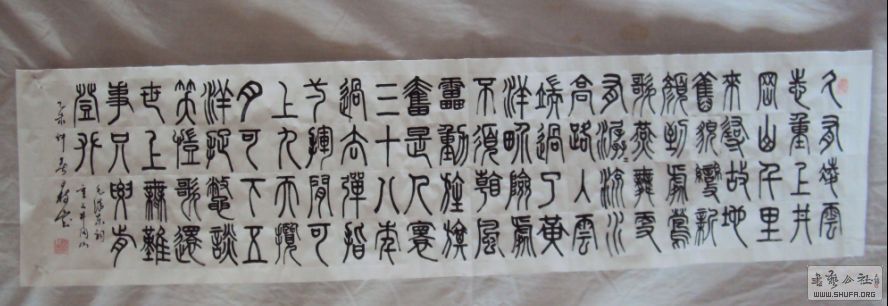 久有凌雲
志重上井
岡山千里
來尋故地
舊貌變新
顏到處鶯
歌燕舞更
有潺潺流水
高路入雲
端過了黃
洋界險處
不須看風
雷動旌旗
奮是人寰
三十八年
過去彈指
一揮間可
上九天攬
月可下五
洋捉鱉談
笑凱歌還
世上無難
事只要肯
登攀
毛澤東詞
重上井岡山
書藝公社
WWW.SHUFA.ORG